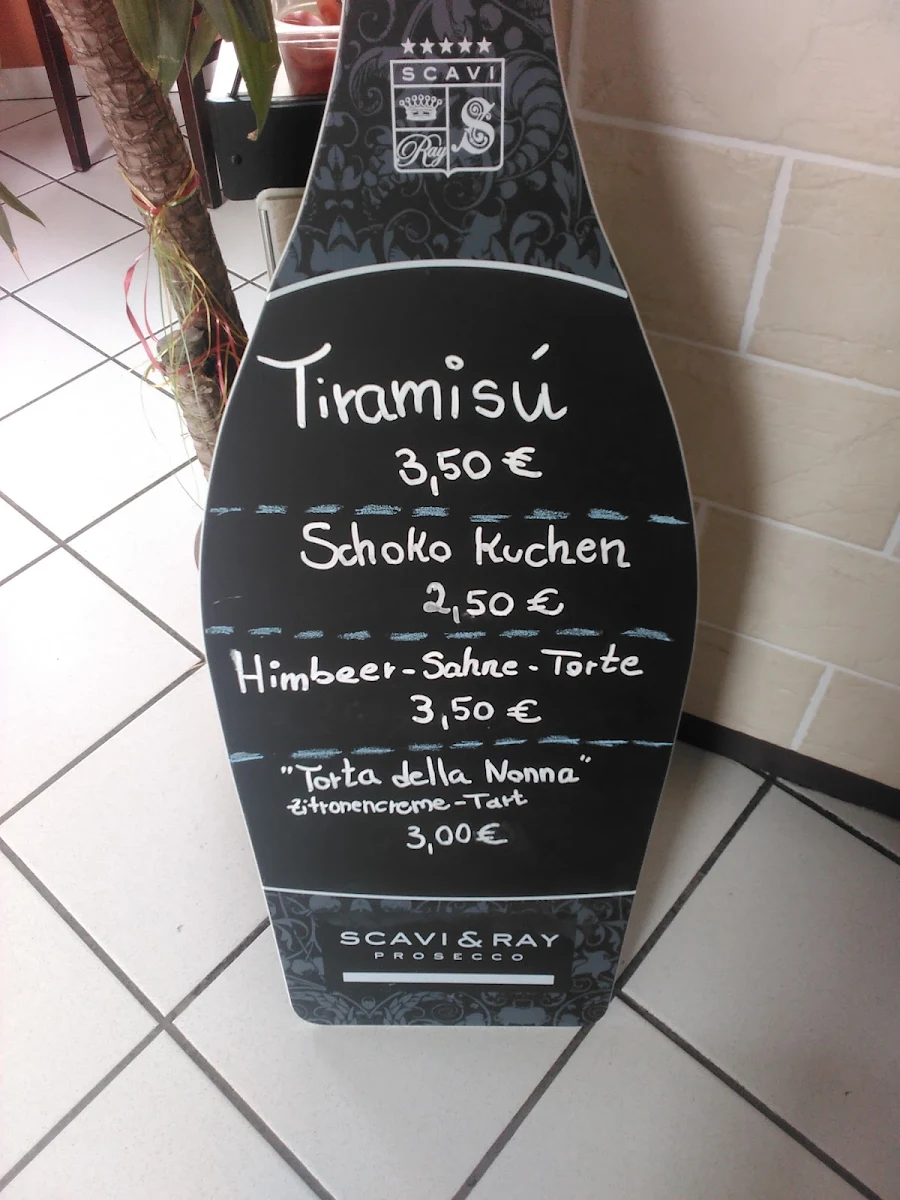 SCAVI
Ray S
Tiramisú
3,50 €
Schoko Kuchen
2,50 €
Himbeer-Sahne-Torte
3,50 €
"Torta della Nonna"
Zitronencreme-Tart
3,00 €
SCAVI & RAY
PROSECCO